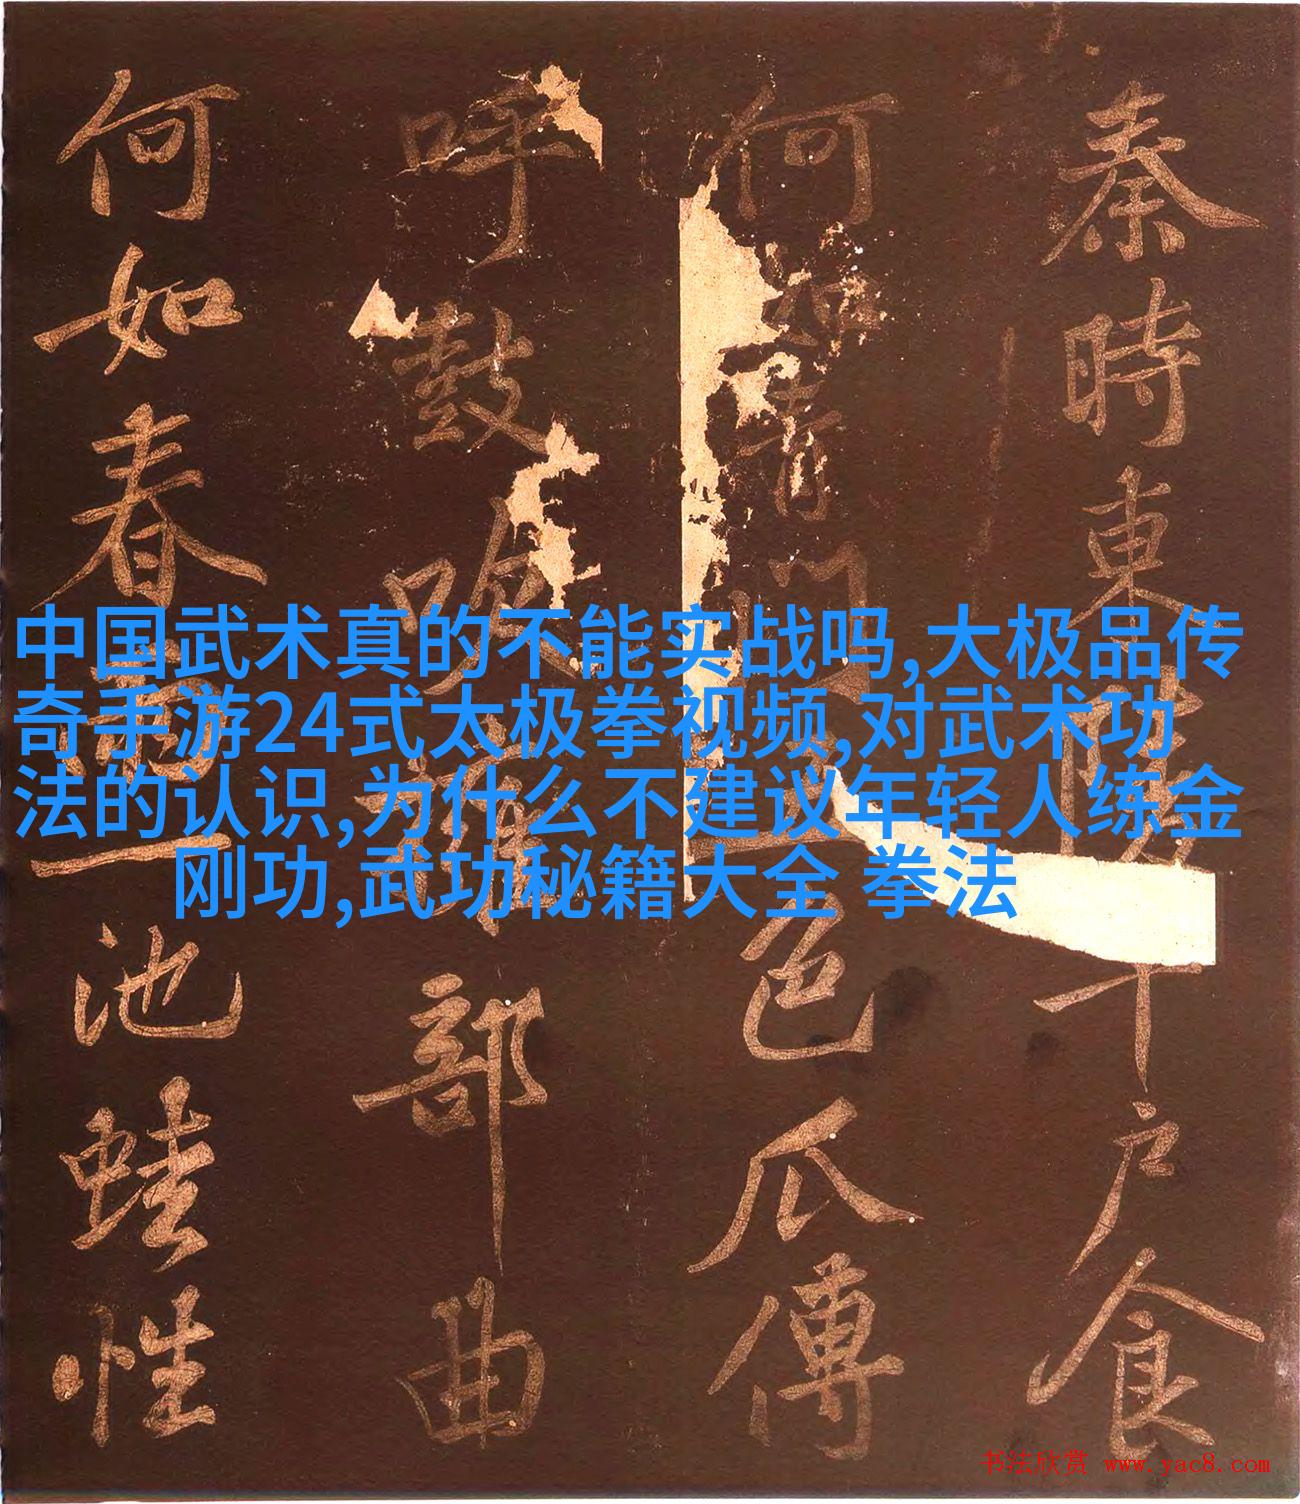 秦時東陵千戶食
何如青門色瓜傳
呼鼓吹擁部曲
何如春雨一池蛙性
中国武术真的不能实战吗,大极品传
奇手游24式太极拳视频,对武术功
法的认识,为什么不建议年轻人练金
刚功,武功秘籍大全 拳法
书法欣赏 www.yac8.com